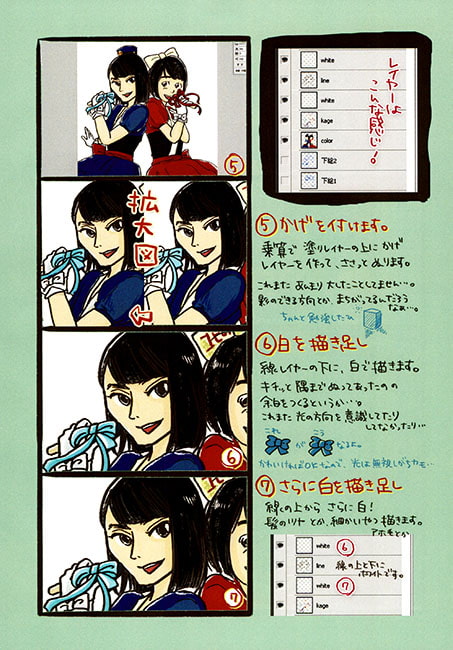 white
line
white
kage
color
下絵2
下絵1
レイヤーは
こんな感じ!
⑤
拡大図
⑤かげを付けます。
乗算で 塗りレイヤーの上にかげ
レイヤーを作って、ささっとぬります。
これまた あんまり大したことしてません…。
影のできる方向とか、まちがってるんだろう
なぁ…。
ちゃんと勉強したひ
⑥白を描き足し
線レイヤーの下に、白で描きます。
キチッと隅までぬってあったのの
余白をつくるというか…。
これまた 光の方向を意識してたり
してなかったり…
これ が こう なるよ。
かわいければOKなので、光は無視しがちカモ…
⑥
⑦さらに白を描き足し
線の上から さらに白!
髪のツヤとか、細かいやつ描きます。
アホ毛とか
⑦
white ⑥
line
線の上と下に
ホワイトです。
white ⑦
kage